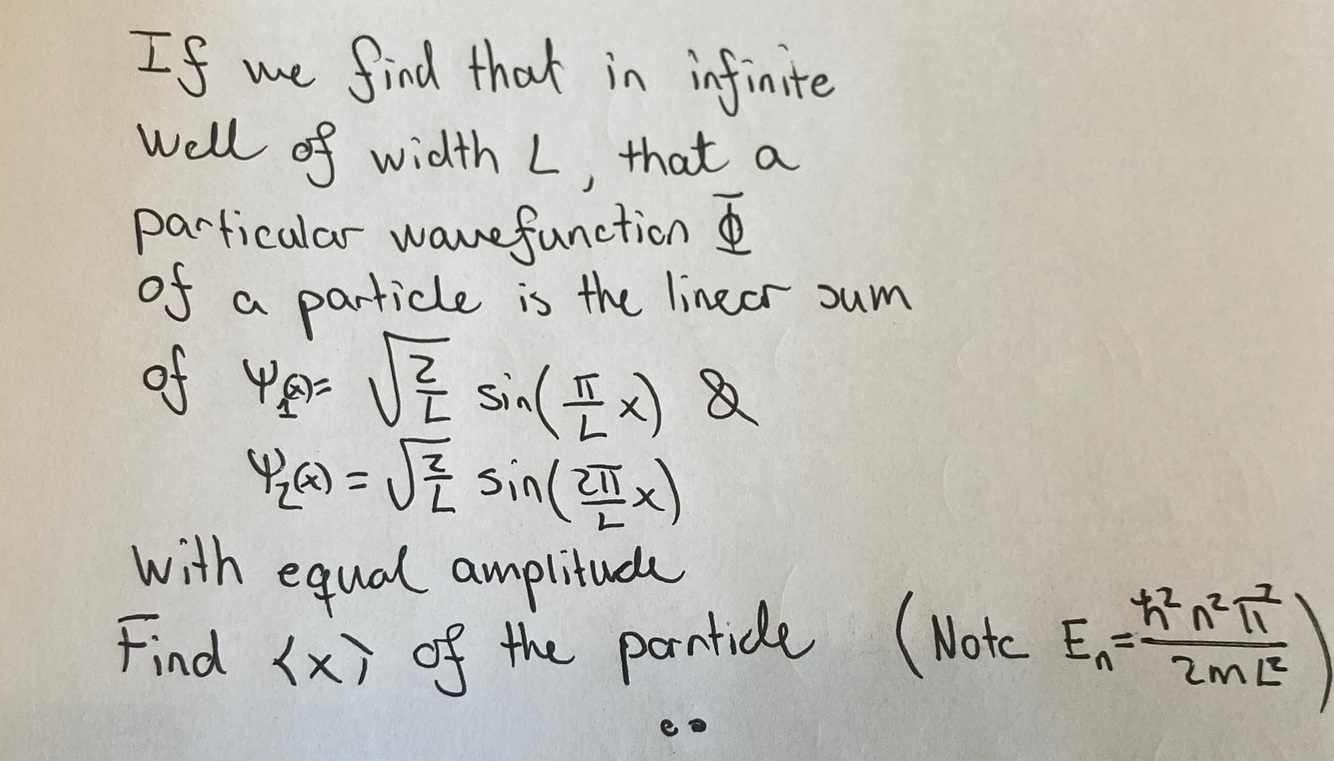 If we find that in infinite
well of width L, that a
particular wavefunction Φ
of a particle is the linear sum
of Ψ₁(x)= √(2/L) sin(π/L x) &
Ψ₂(x) = √(2/L) sin(2π/L x)
with equal amplitude
Find ⟨x⟩ of the parnticle (Note Eₙ=ħ²n²π²/2mL²)